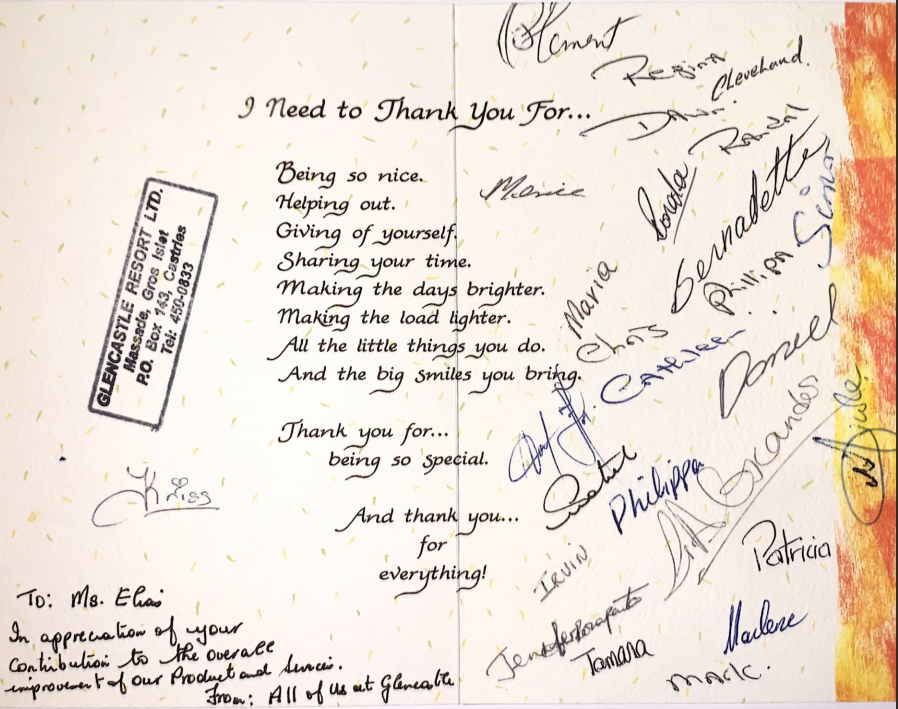 Clement
Regina
Cleveland.
Dawn.
Randal
I Need to Thank You For...
Being so nice.
Helping out.
Giving of yourself.
Sharing your time.
Making the days brighter.
Making the load lighter.
All the little things you do.
And the big smiles you bring.
Thank you for...
being so special.
And thank you...
for
everything!
GLENCASTLE RESORT LTD.
Massade, Gros Islet
P.O. Box 143, Castries
Tel: 450-0833
Bernadette
Phillipa
Maria
Chris
Cathleen
Philippa
Irvin
Patricia
Marlene
Tamara
Mark.
Kriss
To: Ms. Elias
In appreciation of your
Contribution to the overall
improvement of our Product and Services.
From: All of Us at Glencastle